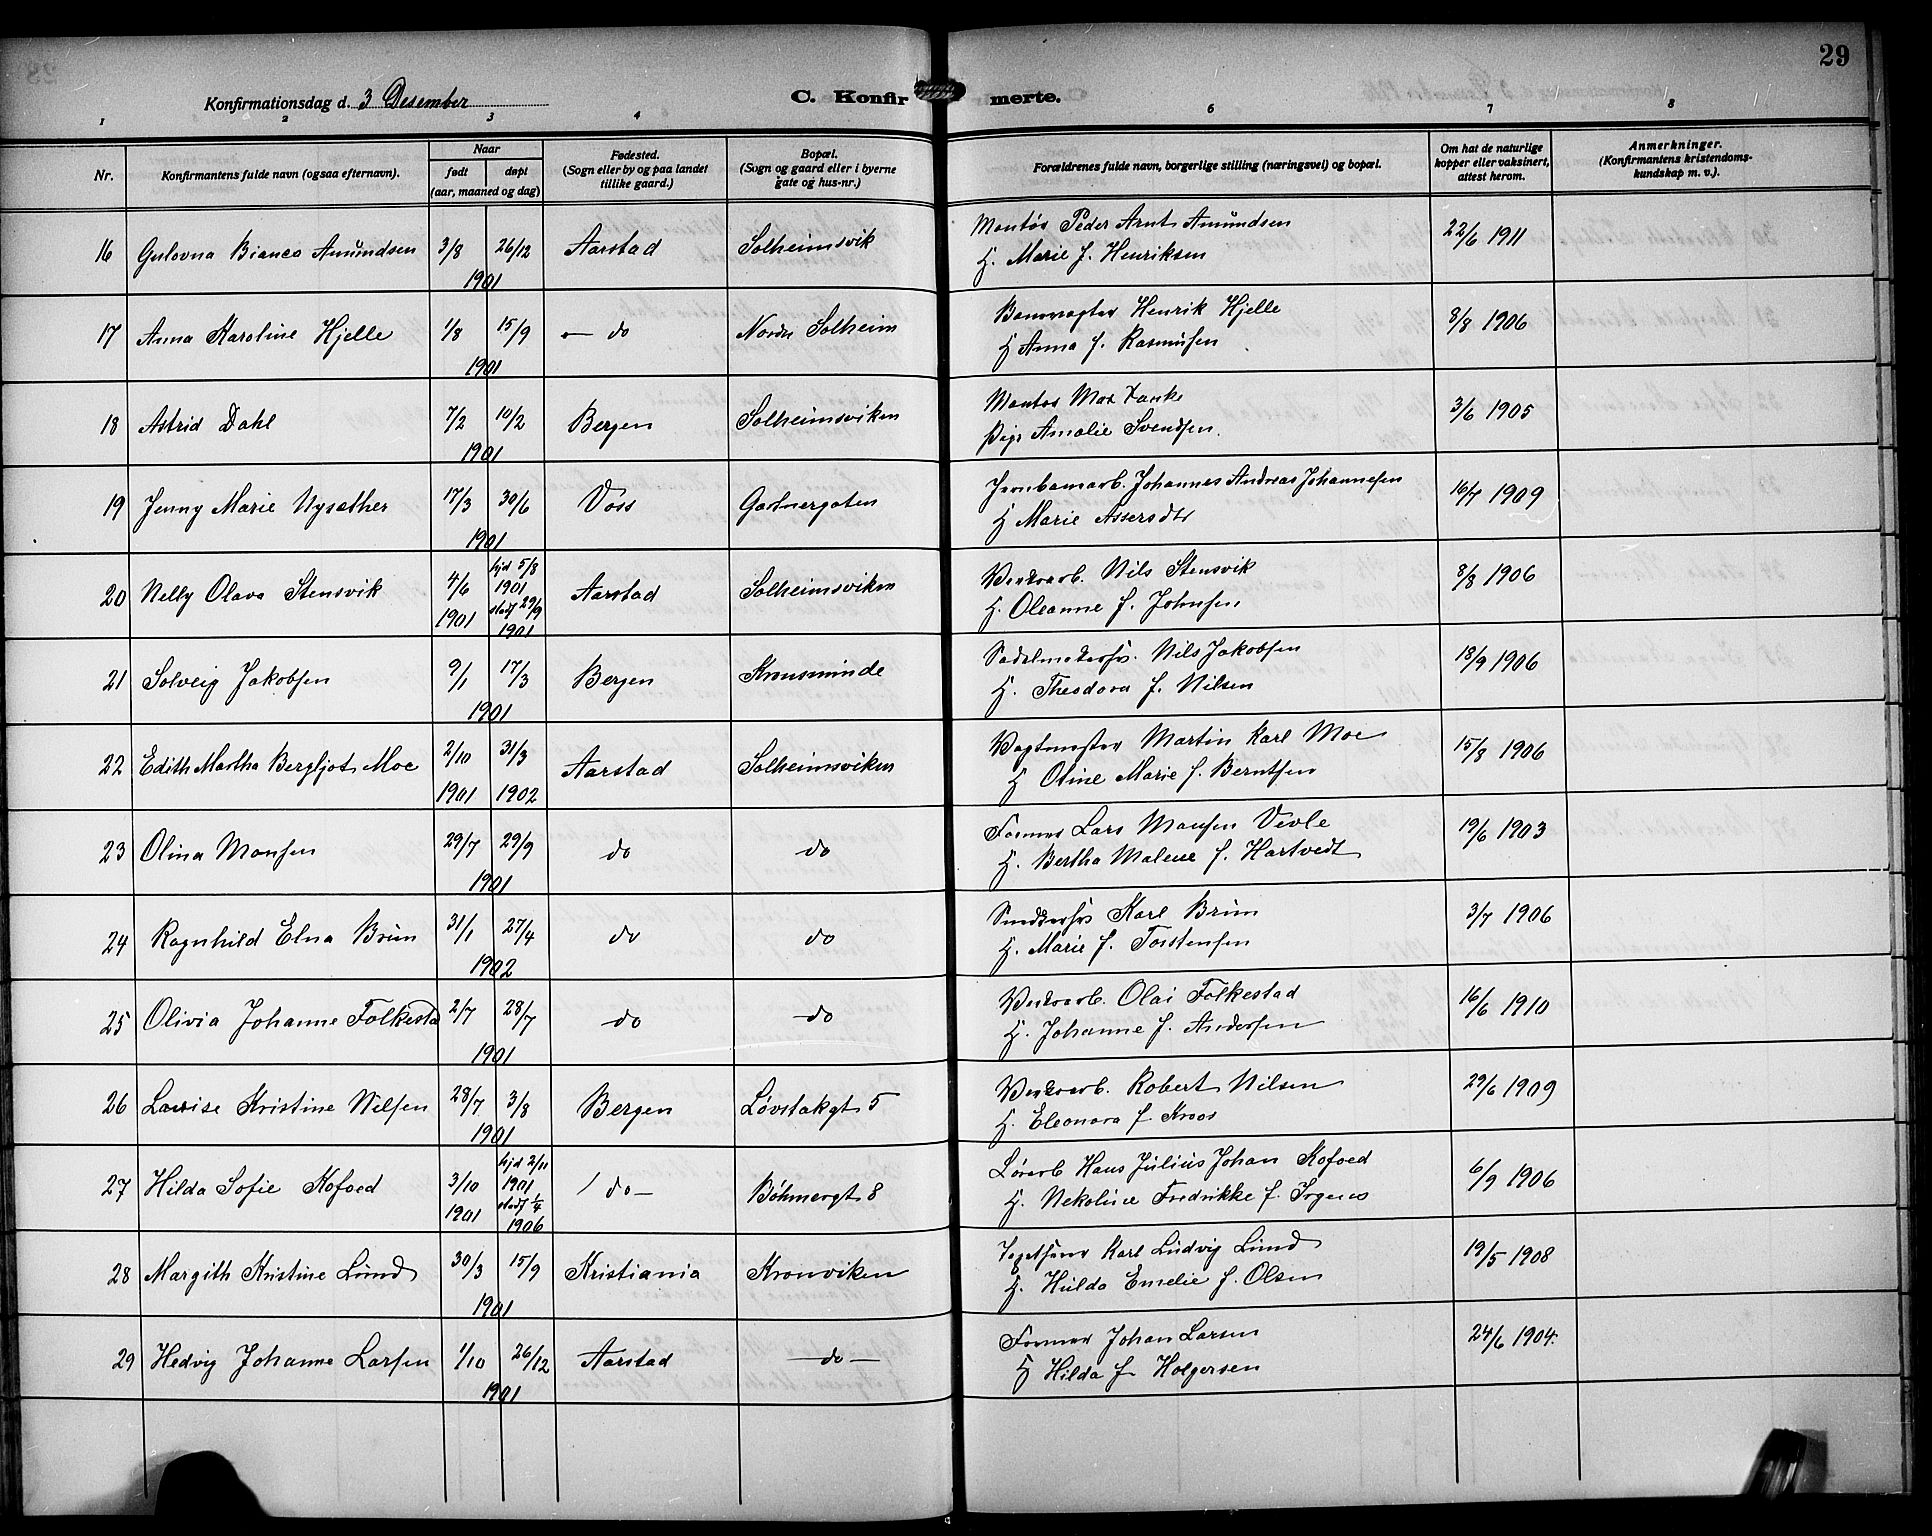 29
Konfirmationsdag d. 3 Desember
C. Konfirmerte.
1 2 3 4 6 7 8
Nr.
Konfirmantens fulde navn (ogsaa efternavn).
Naar
født døpt
(aar, maaned og dag)
Fødested.
(Sogn eller by og paa landet
tillike gaard.)
Bopæl.
(Sogn og gaard eller i byerne
gate og hus-nr.)
Forældrenes fulde navn, borgerlige stilling (næringsvei) og bopæl.
Om hat de naturlige
kopper eller vaksinert,
attest herom.
Anmerkninger.
(Konfirmantens kristendoms-
kundskap m. v.).
16 Gulovna Bianca Amundsen 3/8 26/12 1901 Aarstad Solheimsvik
Montør Peder Arnt Amundsen 22/6 1911
H. Marie f. Henriksen
17 Anna Karoline Hjelle 1/8 15/9 1901 — do Nordre Solheim
Banevogter Henrik Hjelle 8/8 1906
H Anna f. Rasmusen
18 Astrid Dahl 7/2 10/2 1901 Bergen Solheimsviken
Montør Max 3/6 1905
Pige Amalie Svendsen.
19 Jenny Marie Nysæther 17/3 30/6 1901 Voss Gartnergaten
Jernbanearb. Johannes Andreas Johannesen 16/7 1909
H Marie Assersdtr
20 Nelly Olava Stensvik 4/6 1901 hjd 5/8 1901 stadf 29/9 1901 Aarstad Solheimsviken
Verksarb. Nils Stensvik 8/8 1906
H. Oleanne f. Johnsen
21 Solveig Jakobsen 9/1 17/3 1901 Bergen Kronsminde
Sadelmakersv. Nils Jakobsen 18/9 1906
H. Theodora f. Nilsen
22 Edith Martha Bergljot Moe 2/10 1901 31/3 1902 Aarstad Solheimsviken
Vagtmester Martin Karl Moe 15/8 1906
H Oline Marie f. Berntsen
23 Olina Monsen 29/7 29/9 1901 do do
Former Lars Monsen Vevle 19/6 1903
H. Bertha Malene f. Hartvedt
24 Ragnhild Elna Brun 31/1 27/4 1902 do do
Snedkersv Karl Brun 3/7 1906
H. Marie f. Torstensen
25 Olivia Johanne Folkestad 2/7 28/7 1901 do do
Verksarb. Olai Folkestad 16/6 1910
H. Johanne f. Andersen
26 Lovise Kristine Nilsen 28/7 3/8 1901 Bergen Løvstakgt 5
Verksarb. Robert Nilsen 29/6 1909
H. Eleonora f Kroos
27 Hilda Sofie Kofoed 3/10 1901 hjd 2/11 1901 stadf 1/4 1906 / do — Bøhmergt 8
Løsarb Hans Julius Johan Kofoed 6/9 1906
H. Nekoline Fredrikke f. Irgens
28 Margith Kristine Lund 30/3 15/9 1901 Kristiania Kronviken
Karl Ludvig Lund 19/5 1908
H. Hulda Emelie f. Olsen
29 Hedvig Johanne Larsen 1/10 26/12 1901 Aarstad — do —
Former Johan Larsen 24/6 1904.
H Hilda f Holgersen